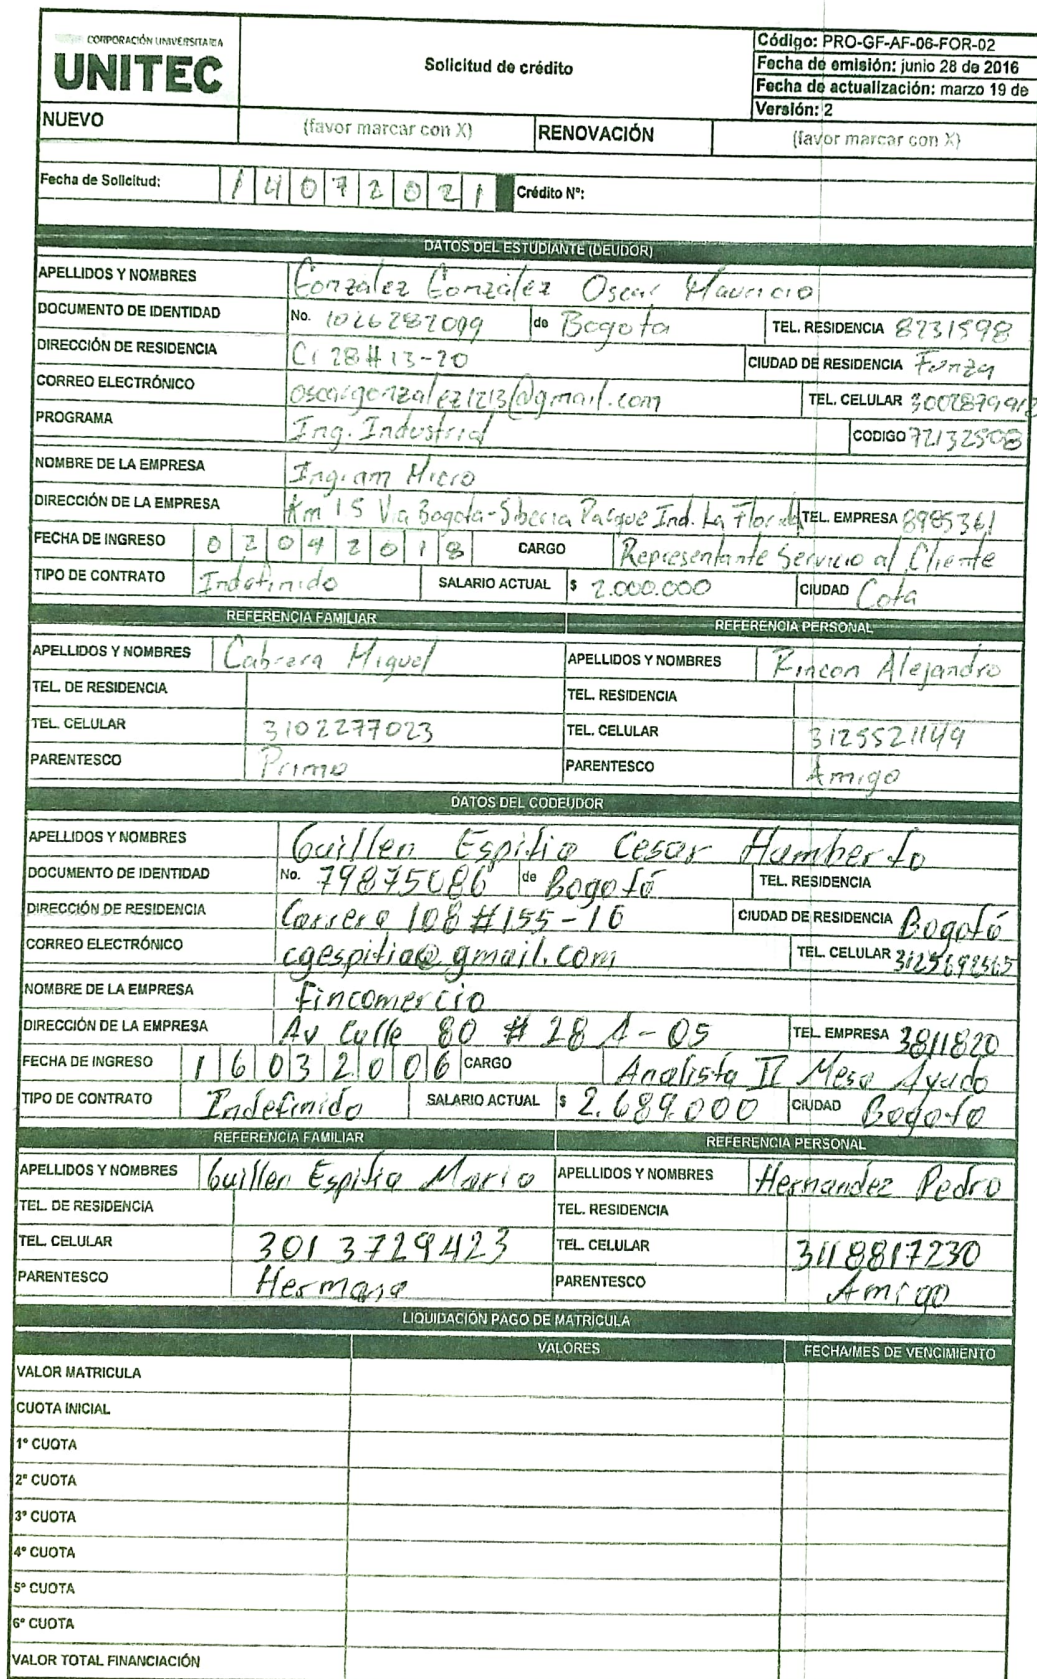 CORPORACIÓN UNIVERSITARIA
UNITEC
Solicitud de crédito
Código: PRO-GF-AF-06-FOR-02
Fecha de emisión: junio 28 de 2016
Fecha de actualización: marzo 19 de
Versión: 2
NUEVO (favor marcar con X) RENOVACIÓN (favor marcar con X)
Fecha de Solicitud: 14072021 Crédito N°:
DATOS DEL ESTUDIANTE (DEUDOR)
APELLIDOS Y NOMBRES González González Oscar Mauricio
DOCUMENTO DE IDENTIDAD No. 1026287099 de Bogota TEL. RESIDENCIA 8231598
DIRECCIÓN DE RESIDENCIA 28 # 13-20 CIUDAD DE RESIDENCIA Funza
CORREO ELECTRÓNICO oscargonzalez1213@gmail.com TEL. CELULAR
PROGRAMA Ing. Industrial CODIGO 72132508
NOMBRE DE LA EMPRESA Ingram Micro
DIRECCIÓN DE LA EMPRESA Km 1.5 Via Bogota-Siberia Parque Ind. La Florida TEL. EMPRESA 8985361
FECHA DE INGRESO 02042018 CARGO Representante Servicio al Cliente
TIPO DE CONTRATO Indefinido SALARIO ACTUAL $ 2.000.000 CIUDAD Cota
REFERENCIA FAMILIAR REFERENCIA PERSONAL
APELLIDOS Y NOMBRES Cabrera Miguel APELLIDOS Y NOMBRES Rincon Alejandro
TEL. DE RESIDENCIA TEL. RESIDENCIA
TEL. CELULAR 3102277023 TEL. CELULAR 3125521149
PARENTESCO Primo PARENTESCO Amigo
DATOS DEL CODEUDOR
APELLIDOS Y NOMBRES Guillen Espitia Cesar Humberto
DOCUMENTO DE IDENTIDAD No. 79875086 de Bogotá TEL. RESIDENCIA
DIRECCIÓN DE RESIDENCIA Carrera 108 #155-16 CIUDAD DE RESIDENCIA Bogotá
CORREO ELECTRÓNICO cgespitia@gmail.com TEL. CELULAR
NOMBRE DE LA EMPRESA Fincomercio
DIRECCIÓN DE LA EMPRESA Av Calle 80 # 28 A-05 TEL. EMPRESA 3811820
FECHA DE INGRESO 16032006 CARGO Analista II Mesa Ayuda
TIPO DE CONTRATO Indefinido SALARIO ACTUAL $ 2.689.000 CIUDAD Bogota
REFERENCIA FAMILIAR REFERENCIA PERSONAL
APELLIDOS Y NOMBRES Guillen Espitia Mario APELLIDOS Y NOMBRES Hernandez Pedro
TEL. DE RESIDENCIA TEL. RESIDENCIA
TEL. CELULAR 3013729423 TEL. CELULAR 3118817230
PARENTESCO Hermano PARENTESCO Amigo
LIQUIDACIÓN PAGO DE MATRÍCULA
VALORES FECHA/MES DE VENCIMIENTO
VALOR MATRICULA
CUOTA INICIAL
1° CUOTA
2° CUOTA
3° CUOTA
4° CUOTA
5° CUOTA
6° CUOTA
VALOR TOTAL FINANCIACIÓN